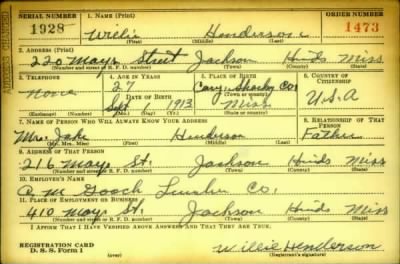 SERIAL NUMBER
1. NAME (Print)
ORDER NUMBER
1928
Willie Henderson
1473
(First) (Middle) (Last)
ADDRESS CHANGED
2. ADDRESS (Print)
220 Mays Street Jackson Hinds Miss
(Number and street or R. F. D. number) (Town) (County) (State)
3. TELEPHONE
4. AGE IN YEARS
5. PLACE OF BIRTH
6. COUNTRY OF CITIZENSHIP
None
27
Cary Sharkey Co.
DATE OF BIRTH
(Town) (County)
U.S.A
Sept 1 1913
Miss
(Exchange) (Number)
(Mo.) (Day) (Yr.)
(State or country)
7. NAME OF PERSON WHO WILL ALWAYS KNOW YOUR ADDRESS
8. RELATIONSHIP OF THAT PERSON
Mr. Jake Henderson
Father
(Mr., Mrs., Miss) (First) (Middle) (Last)
9. ADDRESS OF THAT PERSON
216 Mays St. Jackson Hinds Miss
(Number and street or R. F. D. number) (Town) (County) (State)
10. EMPLOYER'S NAME
R. M. Gooch Lumber Co.
11. PLACE OF EMPLOYMENT OR BUSINESS
410 Mays St. Jackson Hinds Miss
(Number and street or R. F. D. number) (Town) (County) (State)
I AFFIRM THAT I HAVE VERIFIED ABOVE ANSWERS AND THAT THEY ARE TRUE.
REGISTRATION CARD
D. S. S. Form 1
Willie Henderson
(Registrant's signature)
(over)